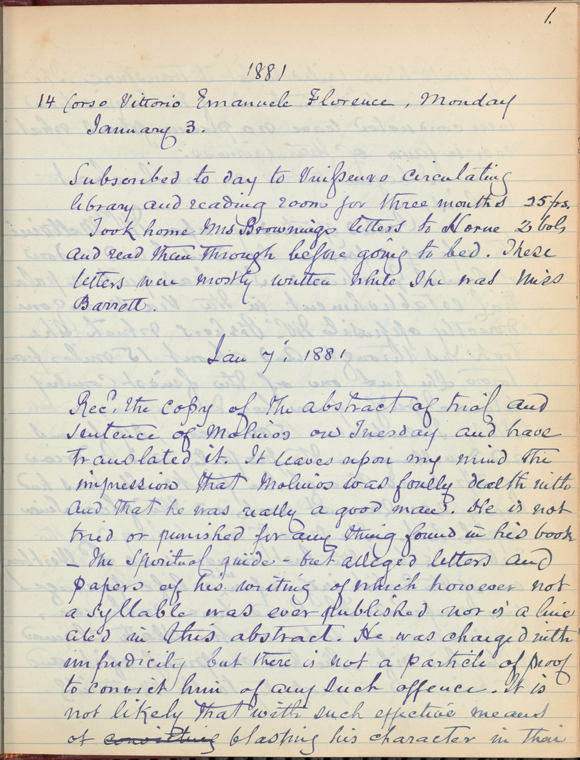 1.
1881
14 Corso Vittorio Emanuele Florence, Monday
January 3.
Subscribed to day to Vieusseux circulating
library and reading room for three months 25 frs.
Took home Mrs Brownings letters to Horne 2 vols
and read them through before going to bed. These
letters were mostly written while she was Miss
Barrett.
Jan 7. 1881
Recd. the copy of the abstract of trial and
sentence of Molinos on Tuesday and have
translated it. It leaves upon my mind the
impression that Molinos was foully dealt with
and that he was really a good man. He is not
tried or punished for any thing found in his book
- The Spiritual guide - but alleged letters and
papers of his writing of which however not
a syllable was ever published nor is a line
cited in this abstract. He was charged with
impudicity but there is not a particle of proof
to convict him of any such offence. It is
not likely that with such effective means
of convicting blasting his character in their